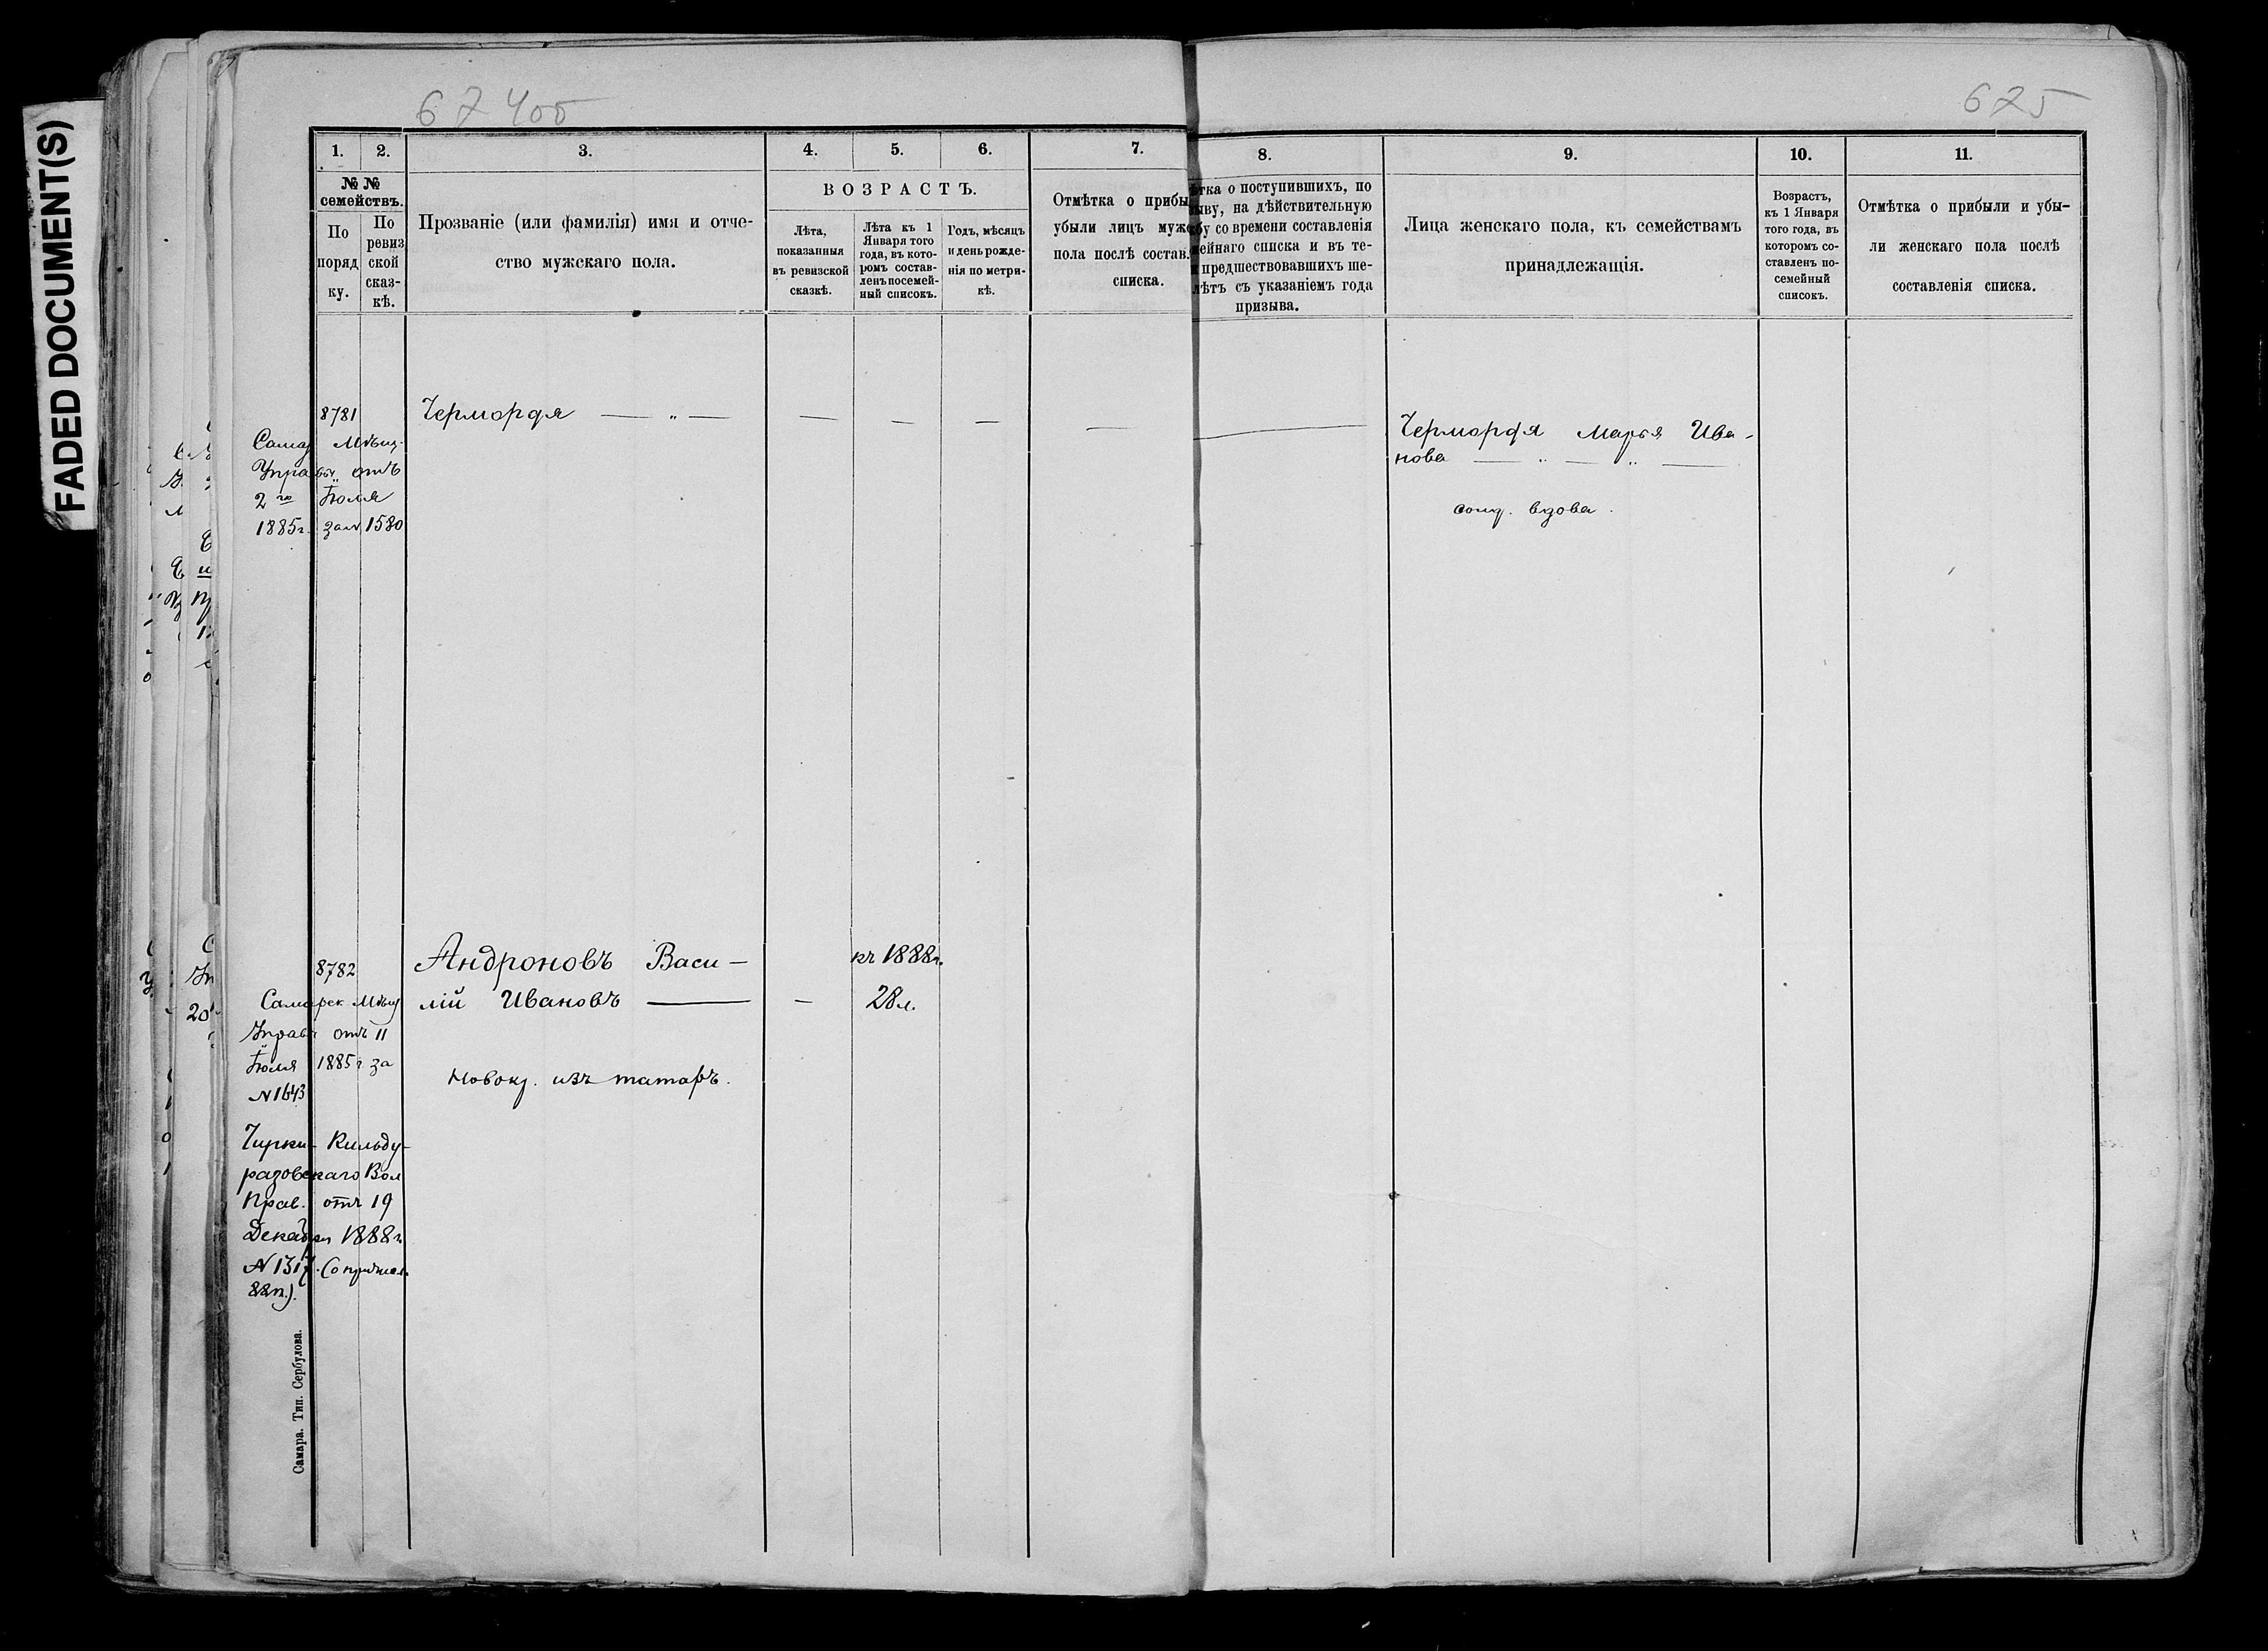 FADED DOCUMENT(S)
67 400
625
1. 2. 3. 4. 5. 6. 7. 8. 9. 10. 11.
№ №
семействъ.
По
поряд
ку.
По
ревиз
ской
сказ-
кѣ.
Прозваніе (или фамилія) имя и отче-
ство мужскаго пола.
ВОЗРАСТЪ.
Лѣта,
показанныя
въ ревизской
сказкѣ.
Лѣта къ 1
Января того
года, въ кото-
ромъ состав-
ленъ посемей-
ный списокъ.
Годъ, мѣсяцъ
и день рожде-
нія по метри-
кѣ.
Отмѣтка о прибы
убыли лицъ муж
пола послѣ состав.
списка.
ѣтка о поступившихъ, по
ыву, на дѣйствительную
бу со времени составленія
мейнаго списка и въ те-
предшествовавшихъ ше-
лѣтъ съ указаніемъ года
призыва.
Лица женскаго пола, къ семействамъ
принадлежащія.
Возрастъ,
къ 1 Января
того года, въ
которомъ со-
ставленъ по-
семейный
списокъ.
Отмѣтка о прибыли и убы-
ли женскаго пола послѣ
составленія списка.
8781
Самар Мѣщ.
Управы отъ
2го Іюля
1885г. за № 1580
Чермордя — „ —
Чермордя Марья Ива-
нова — „ — „ —
солд. вдова.
8782
Самарск. Мѣщ
Управы отъ 11
Іюля 1885г за
№ 1643
Андроновъ Васи-
лій Ивановъ —
къ 1888г.
28 л.
Новокр. изъ татаръ.
Чирки-Кильду-
разовскаго Вол
Прав. отъ 19
Декабря 1888г
№ 1317.
88 п.).
Самара. Тип. Сербулова.